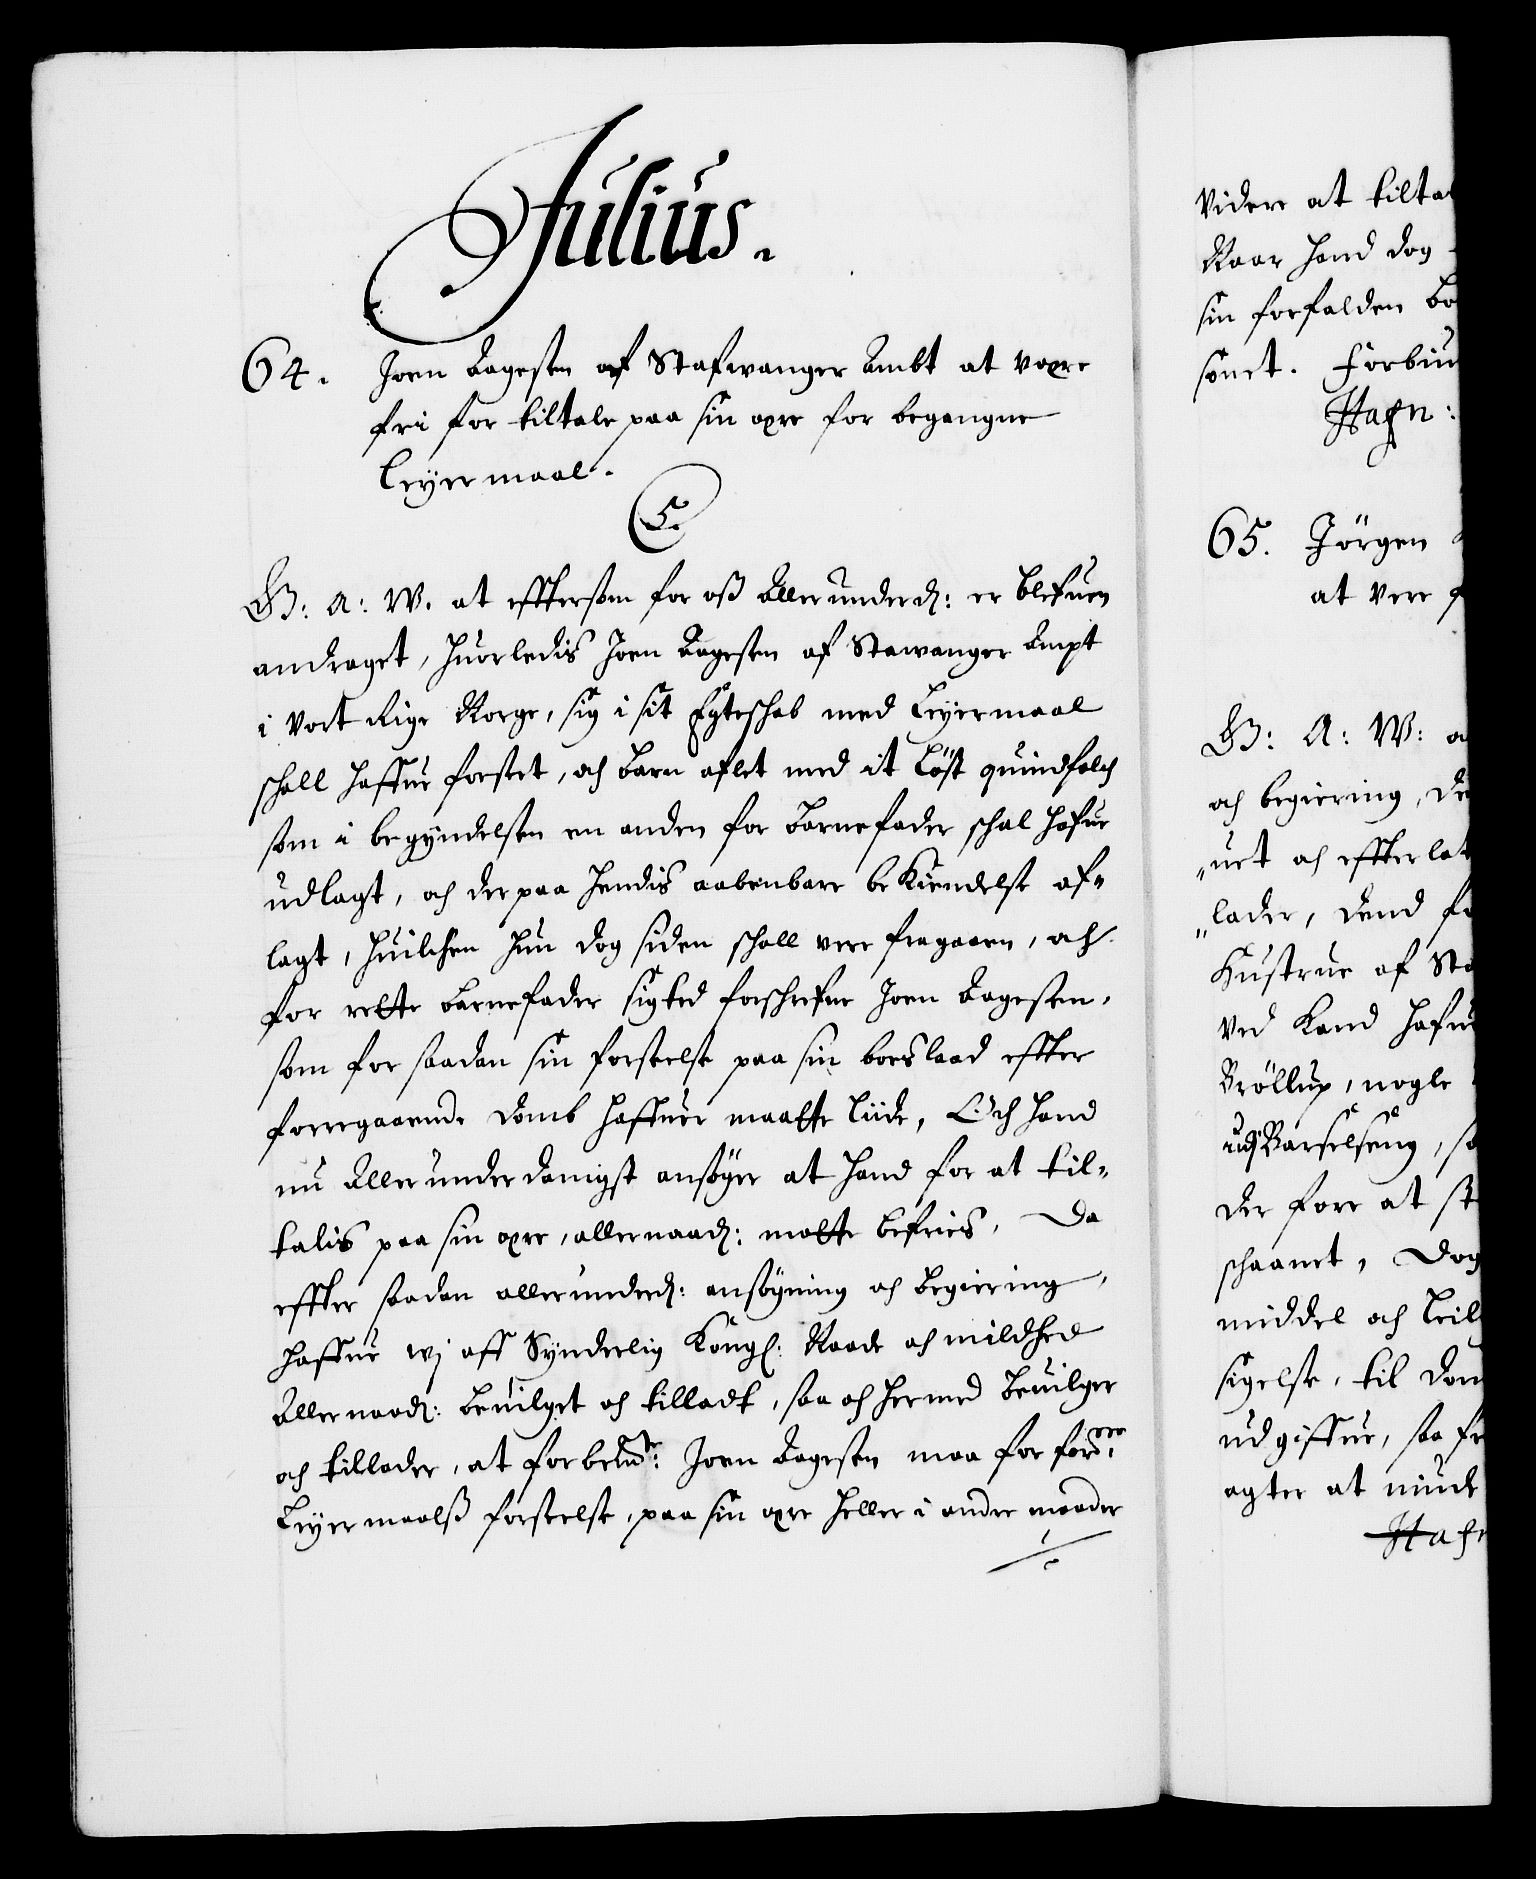 Julius.
64. Joen Aagesen af Stafwanger Ambt at være
fri for tiltale paa sin ære for begangne
Leyermaal.
C. 5.
G: A: W. at efftersom for oss Allerunderd: er blefuen
andraget, huorledis Joen Aagesen af Stawanger Ampt
i Vort Rige Norge, sig i sit Egteschab med Leyermaal
schall haffue forseet, och Barn aflet med it Löst quindfolch
som i begyndelsen en anden for Barnefader schal hafue
udlagt, och derpaa hendis aabenbare bekiendelse af-
lagt, huilchen hun dog siden schall vere fragaaen, och
for rette Barnefader sigted forschrefne Joen Aagesen,
som for saadan sin forseelse paa sin boeslaad effter
foregaaende Domb haffuer maatte liide, Och hand
nu Allerunderdanigst ansøger at hand for at til-
talis paa sin ære, allernaad: motte befries, Da
effter saadan allerunderd: ansøgning och begiering,
haffue wj aff Synderlig Kongl: Naade och mildhed
Allernaad: beuilget och tilladt, saa och hermed beuilger
och tillader, at forbem:te Joen Aagesen maa for for:ne
Leyermaalss forseelse, paa sin ære heller i andre maader
Videre at tilta
Naar hand dog
sin forfalden Bo
sonet. Forbiu
Hafn:
65. Jörgen
at vere f
G: A: W: a
och begiering, De
uet och effterlat
lader, Dend fo
Hustrue af Sta
Ved Kand hafue
Bröllup, nogle
udj Barselseng, s
der fore at st
schaanet, Dog
middel och Leil
sigelse, til Dom
udgiffue, saa fr
agter at niude
Hafn